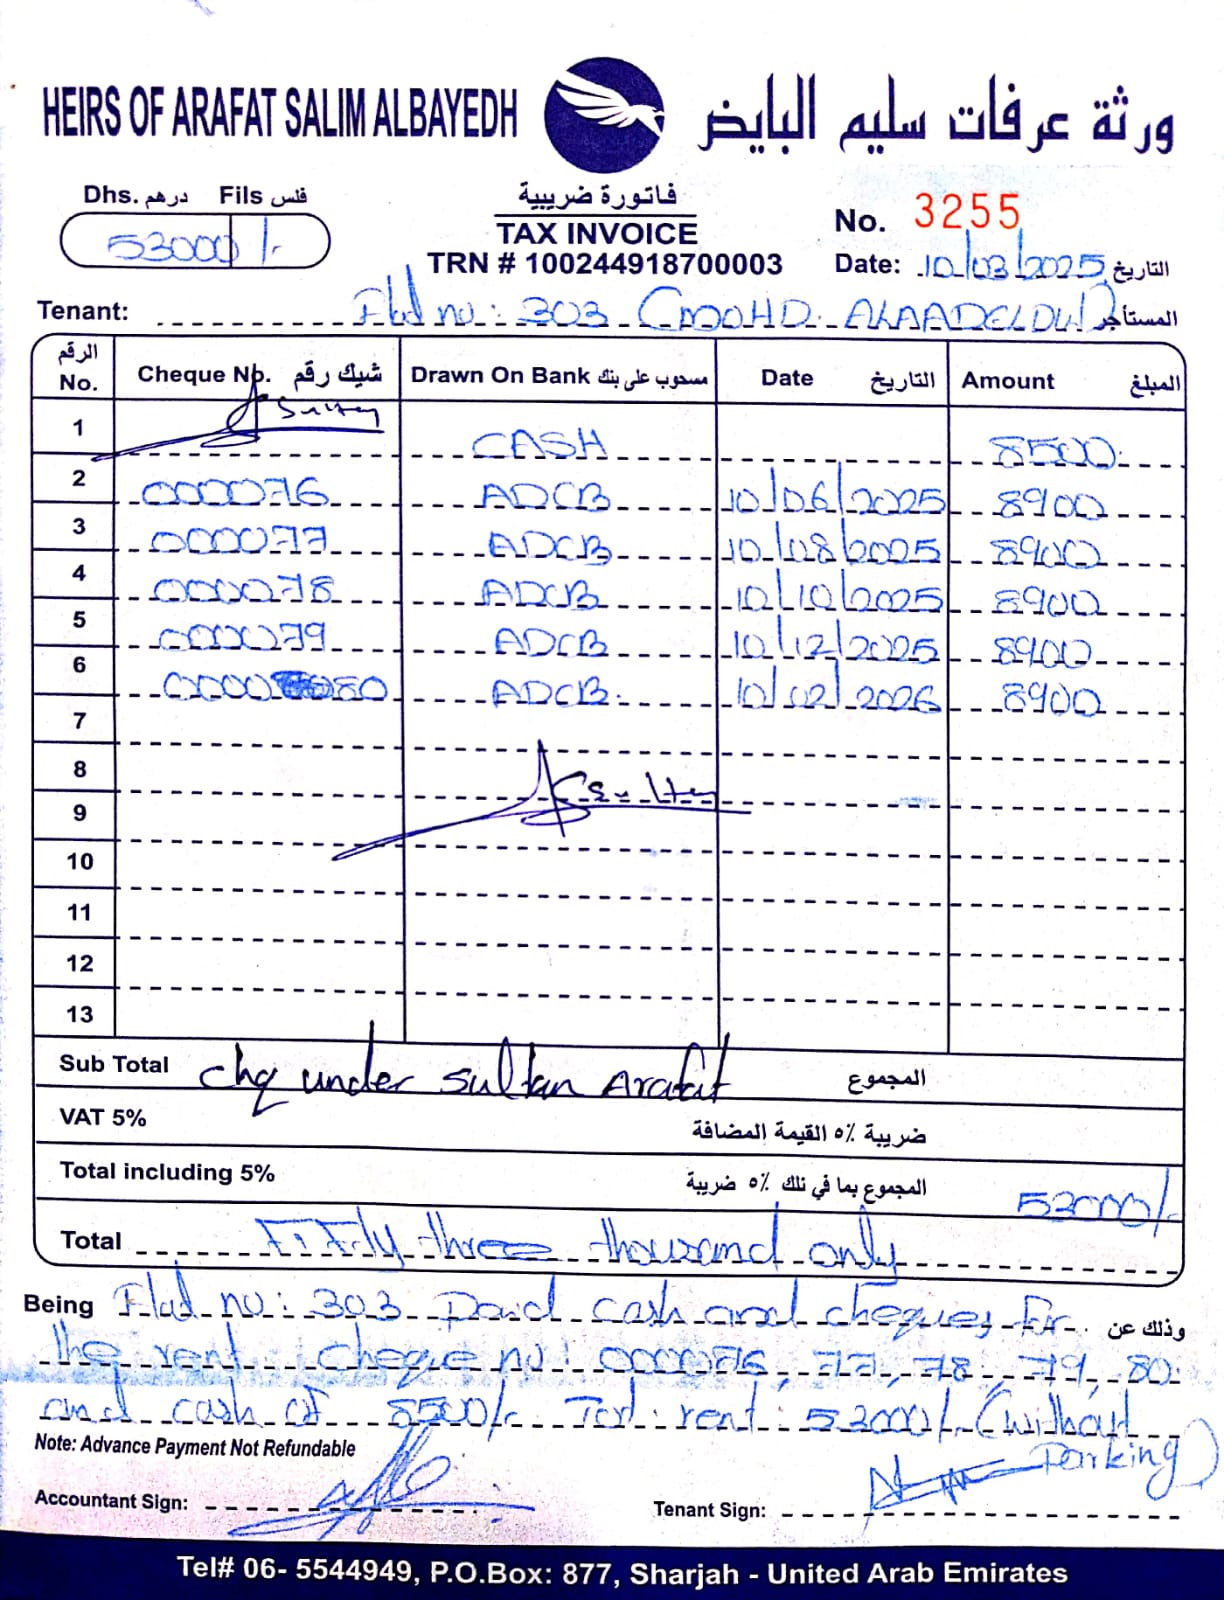 HEIRS OF ARAFAT SALIM ALBAYEDH
ورثة عرفات سليم البايض
Dhs. درهم Fils فلس
53000/-
فاتورة ضريبية
TAX INVOICE
TRN # 100244918700003
No. 3255
Date: 10/03/2025 التاريخ
Tenant: Flat no: 303 (MOHD. ALAADELDIN) المستأجر
الرقم No. Cheque No. شيك رقم Drawn On Bank مسحوب على بنك Date التاريخ Amount المبلغ
1 CASH 8500.
2 000076 ADCB 10/06/2025 8900
3 000077 ADCB 10/08/2025 8900
4 000078 ADCB 10/10/2025 8900
5 000079 ADCB 10/12/2025 8900
6 000080 ADCB. 10/02/2026 8900
7
8
9
10
11
12
13
Sub Total chq under Sultan Arafat المجموع
VAT 5% ضريبة ٥٪ القيمة المضافة
Total including 5% المجموع بما في تلك ٥٪ ضريبة 53000/-
Total Fifty three thousand only
Being Flat no: 303 Paid cash and cheques for وذلك عن
the rent. cheque no: 000076, 77, 78, 79, 80.
and cash of 8500/- Tot: rent: 53000/- (without
Parking)
Note: Advance Payment Not Refundable
Accountant Sign:
Tenant Sign:
Tel# 06- 5544949, P.O.Box: 877, Sharjah - United Arab Emirates